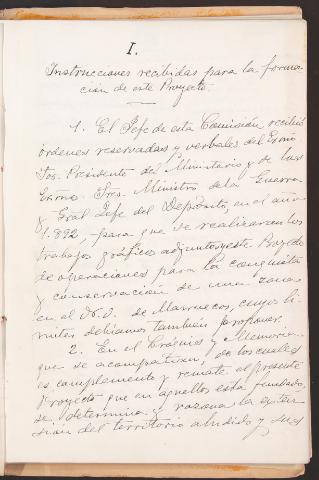 I.
Instrucciones recibidas para la forma-
ción de este Proyecto.
1. El Jefe de esta Comisión recibió
órdenes reservadas y verbales del Exmo
Sor. Presidente del Ministerio y de los
Exmos. Sres. Ministro de la Guerra
y Gral Jefe del Depósito, en el año
1.892, para que se realizaran los
trabajos gráficos adjuntos y este Proyecto
de operaciones para la conquista
y conservación de una zona
en el N.O. de Marruecos, cuyos lí-
mites debíamos también proponer.
2. En el Croquis y Memoria
que se acompañan, de los cuales
es complemento y remate el presente
Proyecto que en aquellos está fundado,
se determina y razona la exten-
sión del territorio aludido y sus